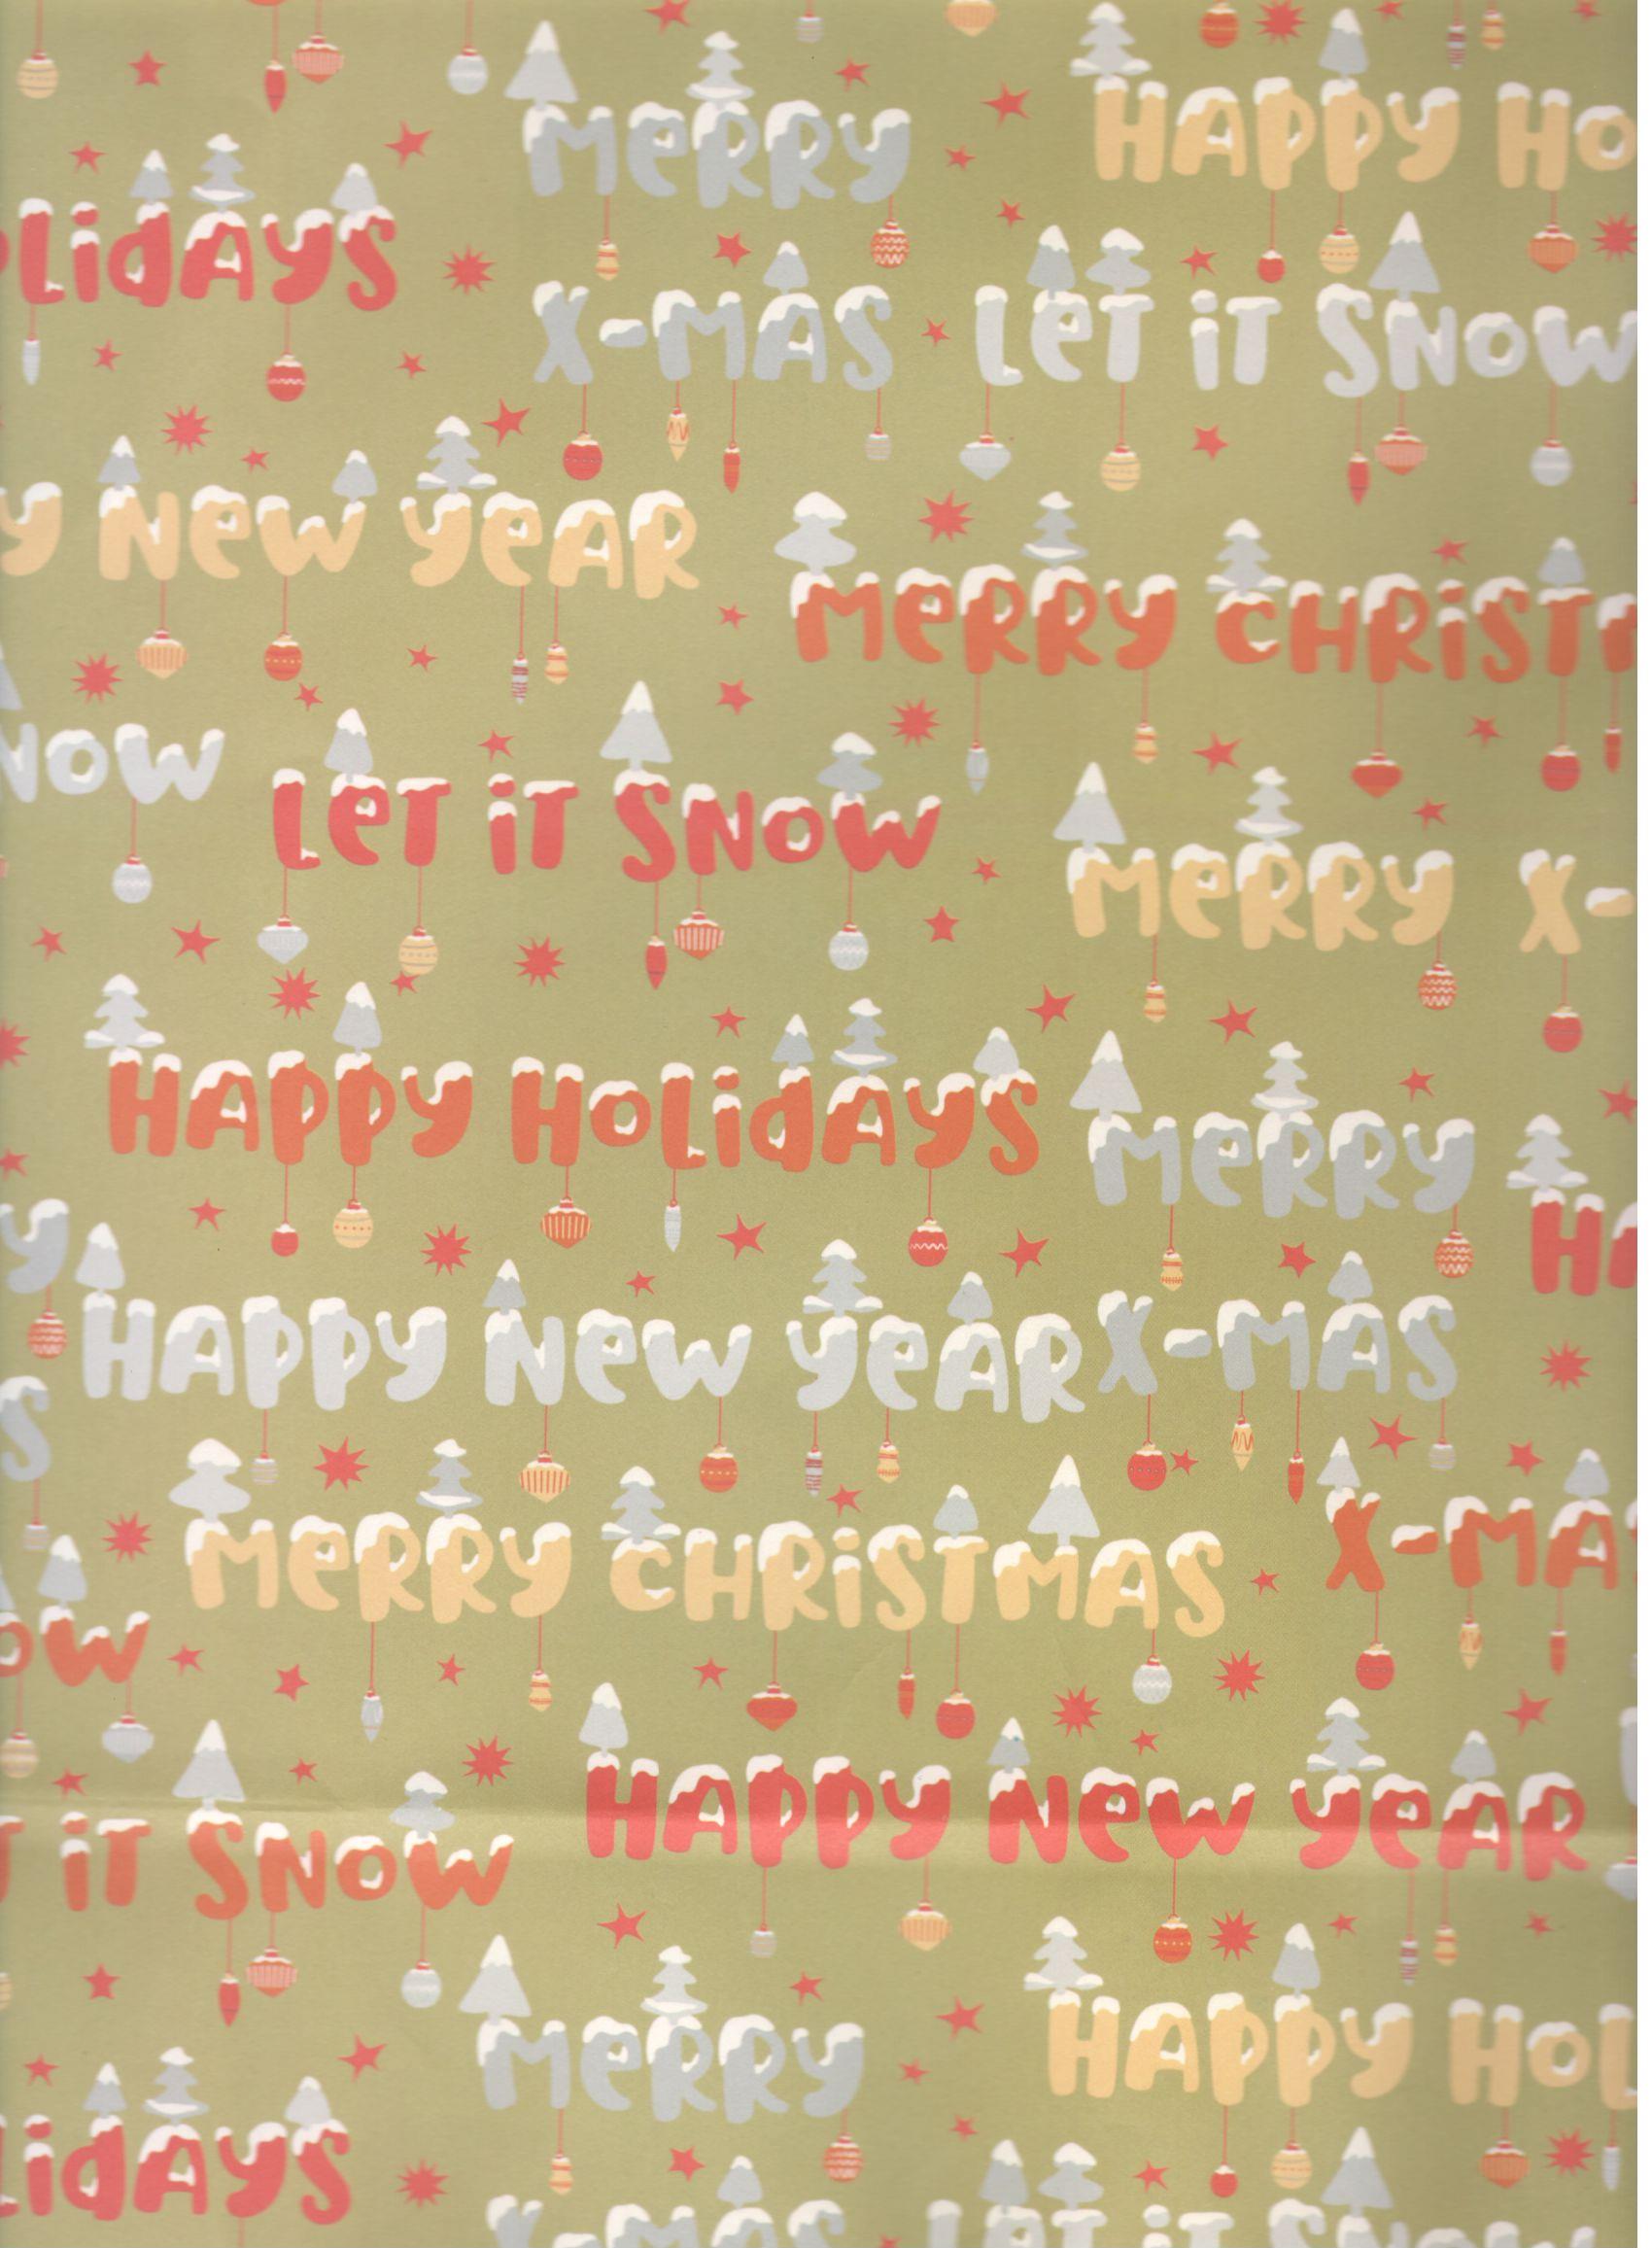 MeRRy
HAPPy Ho
LidAyS
X-MAS
LeT iT SNOW
y New yeAR
MeRRy CHRiST
NOW
LeT iT SNOW
MeRRy X-
HAPPy HoLidAyS
MeRRy
HA
y
HAPPy New yeAR
X-MAS
S
MeRRy CHRiSTMAS
X-MAS
OW
HAPPy New yeAR
T iT SNOW
MeRRy
HAPPy HoL
LidAyS
X-MAS
LeT iT SNOW